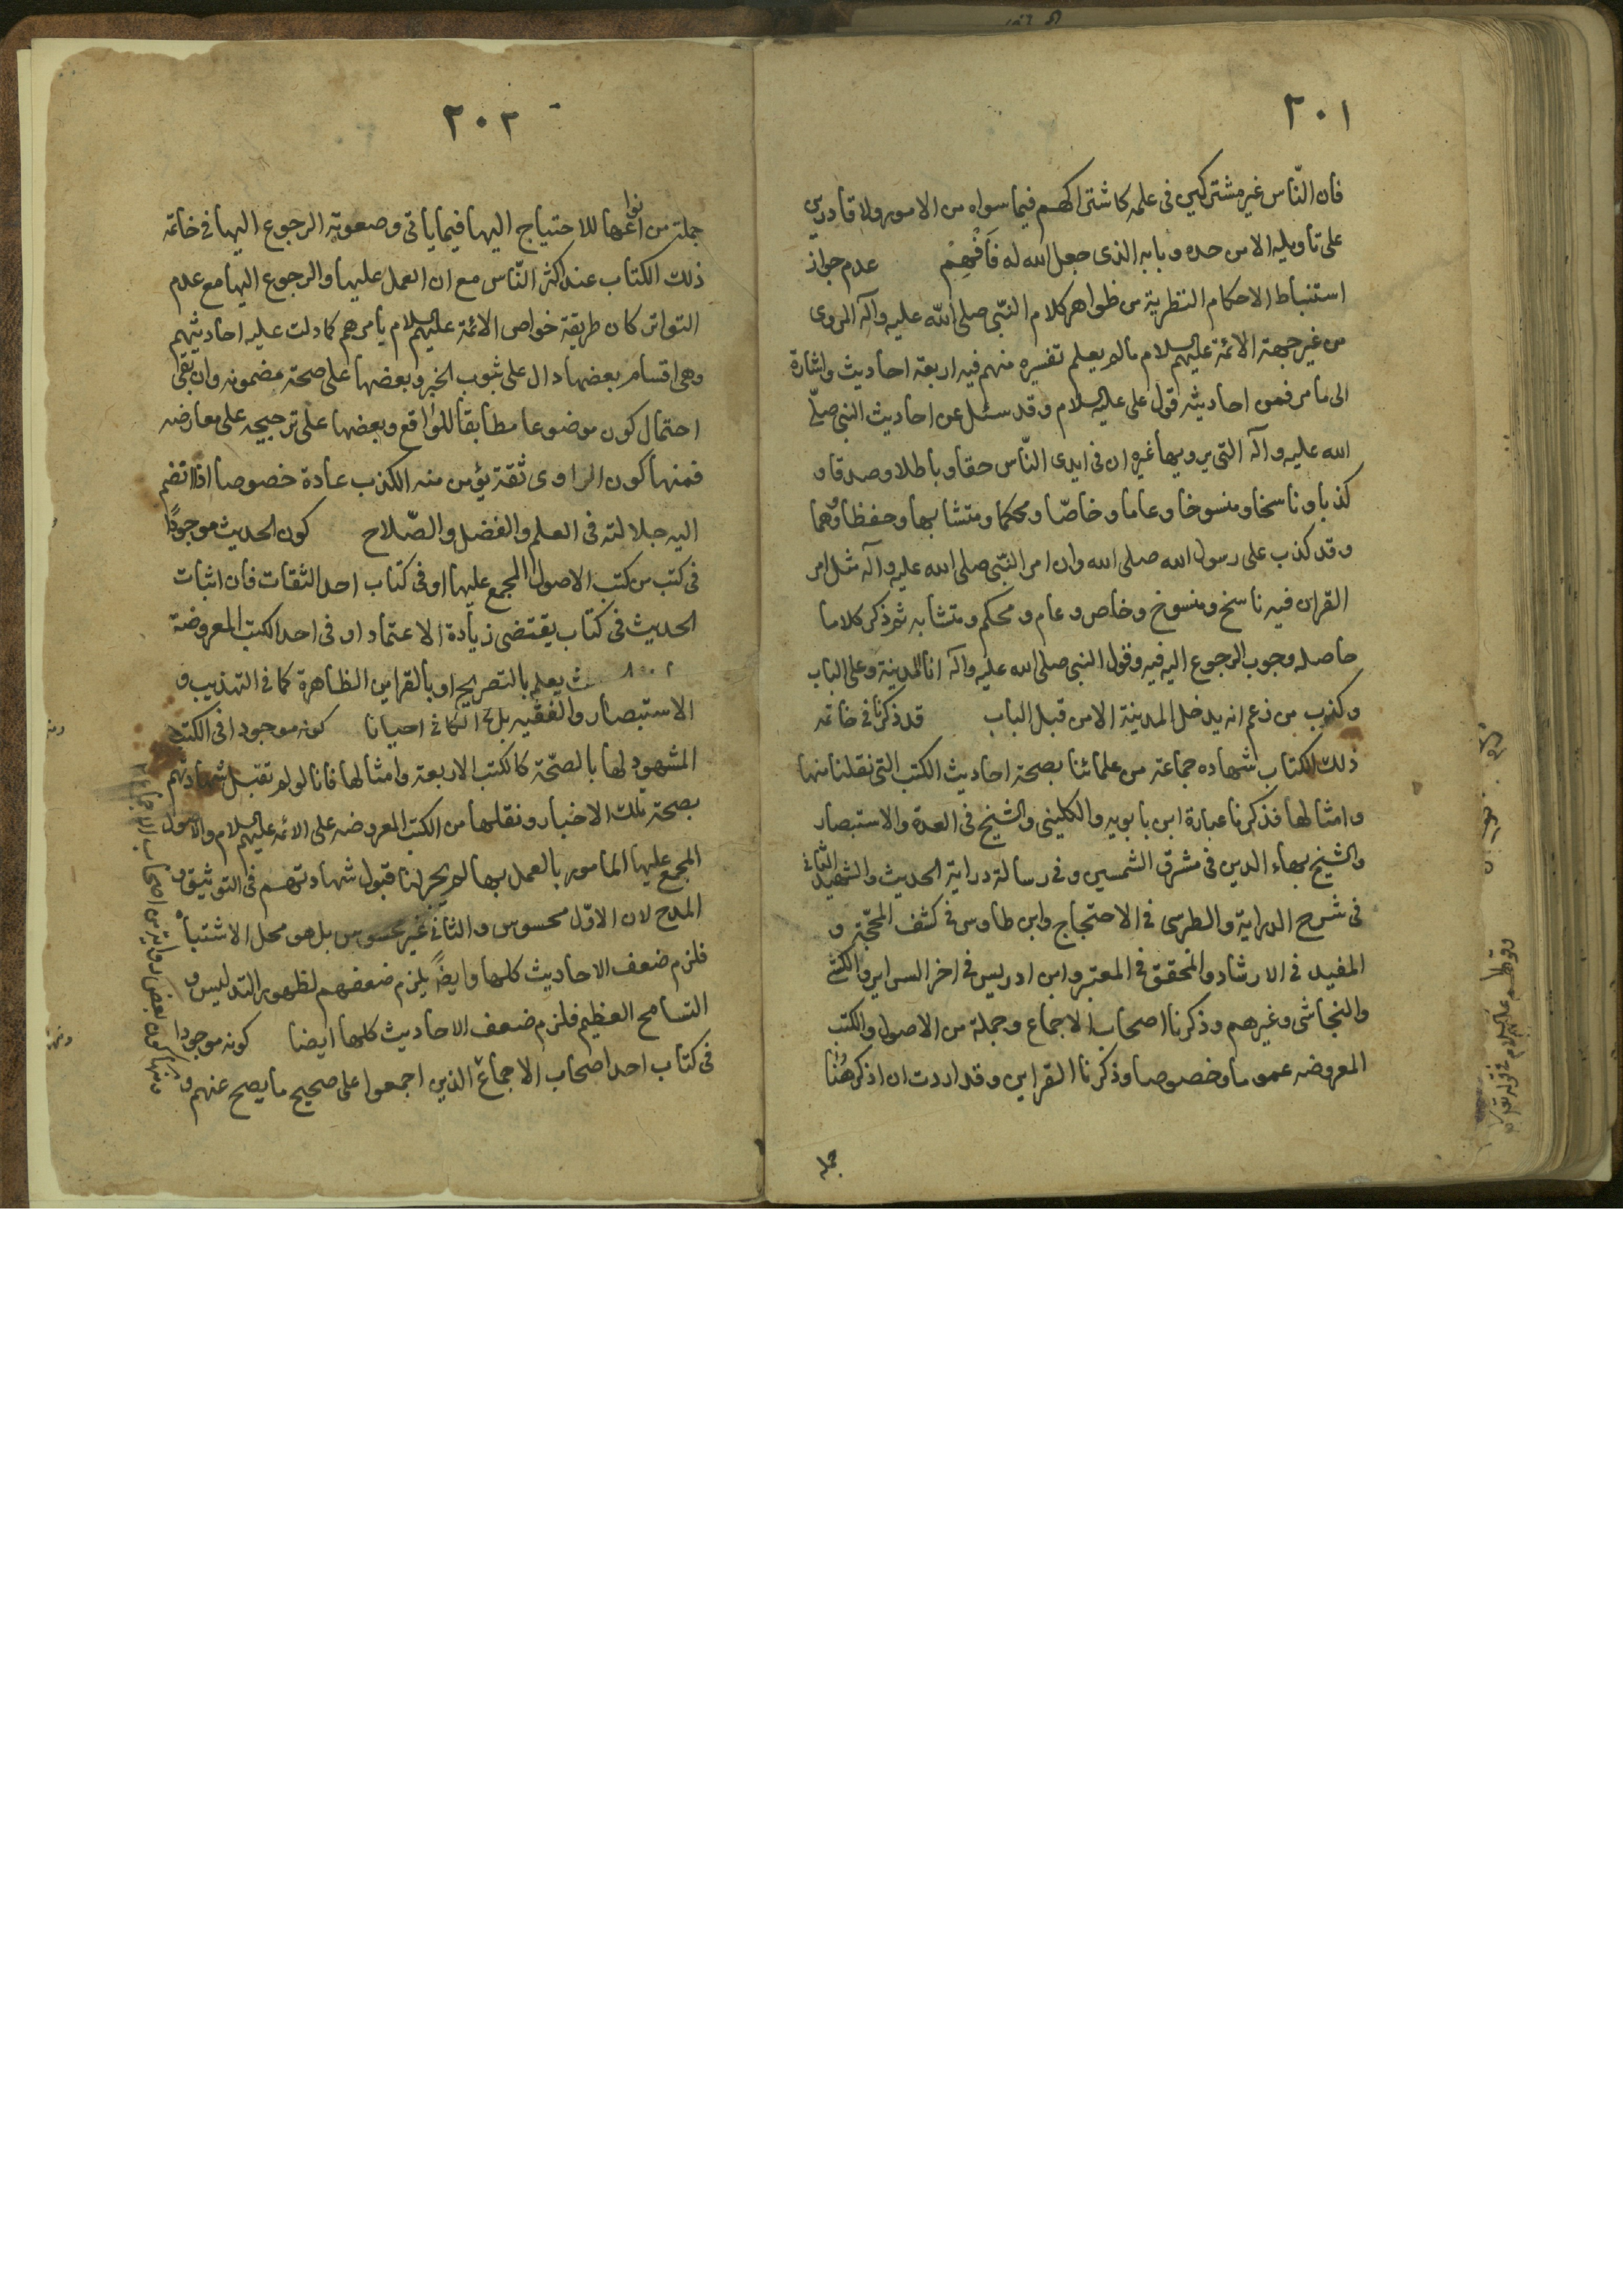 ٢٠١
فان النّاس غير مشتركين فى علمه كاشتراكهم فيما سواه من الامور ولا قادرين
على تاويله الا من حده وبابه الذى جعل الله له فَافْهِمْ عدم جواز
استنباط الاحكام النظرية من ظواهر كلام النّبى صلى اللّه عليه وآله المروى
من غير جهة الائمة عليهم السلام مالم يعلم تفسيره منهم فيه اربعة احاديث واشارة
الى مامر فمن احاديثه قول على عليه السلام وقد سئل عن احاديث النبى صلّى
الله عليه وآله التى يرويها غيره ان فى ايدى النّاس حقا وباطلا وصدقا و
كذبا وناسخا ومنسوخا وعاما وخاصّا ومحكما ومتشابها وحفظا ووهما
وقد كذب على رسول الله صلى الله وان امر النّبى صلى الله عليه وآله مثل امر
القران فيه ناسخ ومنسوخ وخاص وعام ومحكم ومتشابه ثم ذكر كلاما
حاصله وجوب الرجوع اليه فيه وقول النبى صلى الله عليه وآله انا المدينة وعلى الباب
وكذب من زعم انه يدخل المدينة الا من قبل الباب قد ذكرنا فى خاتمه
ذلك الكتاب شهاده جماعة من علمائنا بصحة احاديث الكتب التى نقلنا منها
وامثالها فذكرنا عبارة ابن بابويه والكلينى والشيخ فى العدة والاستبصار
والشيخ بهاء الدين فى مشرق الشمسين وفى رسالة دراية الحديث والشهيد الثانى
فى شرح الدراية والطبرسى فى الاحتجاج وابن طاوس فى كشف المحجّة و
المفيد فى الارشاد والمحقق فى المعتبر وابن ادريس فى اخر السراير والكشى
والنجاشى وغيرهم وذكرنا اصحاب الاجماع وجملة من الاصول والكتب
المعروضه عموما وخصوصا وذكرنا القراين وقد اردت ان اذكر هُنا
جمله
٢٠٢
جملة من انواعها للاحتياج اليها فيما ياتى وصعوبة الرجوع اليها فى خاتمة
ذلك الكتاب عند اكثر النّاس مع ان العمل عليها والرجوع اليها مع عدم
التواتر كان طريقة خواص الائمة عليهم السلام يامرهم كما دلت عليه احاديثهم
وهى اقسام بعضها دال على ثبوت الخبر وبعضها على صحة مضمونه وان بقى
احتمال كون موضوعا مطابقا للواقع وبعضها على ترجيحه على معارضه
فمنها كون الراوى ثقة يؤمن منه الكذب عادة خصوصا اذا انضم
اليه جلالته فى العلم والفضل والصّلاح كون الحديث موجودًا
فى كتب من كتب الاصول المجمع عليها او فى كتاب احد الثقات فان اثبات
الحديث فى كتاب يقتضى زيادة الاعتماد او فى احد الكتب المعروضة
يعلم بالتصريح او بالقراين الظاهرة كما فى التهذيب و
الاستبصار والفقيه بل الكافى احيانا كونه موجودا فى الكتب
المشهود لها بالصحّة كالكتب الاربعة وامثالها فانا لو لم تقبل شهادتهم
بصحة تلك الاخبار ونقلها من الكتب المعروضه على الائمة عليهم السلام والاصول
المجمع عليها المامور بالعمل بها لم يجز لنا قبول شهادتهم فى التوثيق و
المدح لان الاوّل محسوس والثانى غير محسوس بل هو محل الاشتباه
فلزم ضعف الاحاديث كلها وايضًا يلزم ضعفهم لظهور التدليس و
التسامح العظيم فلزم ضعف الاحاديث كلها ايضا كونه موجودا
فى كتاب احد اصحاب الاجماع الذين اجمعوا على صحيح ما يصح عنهم و
ومنها كون بعض رواته من اصحاب الاجماع